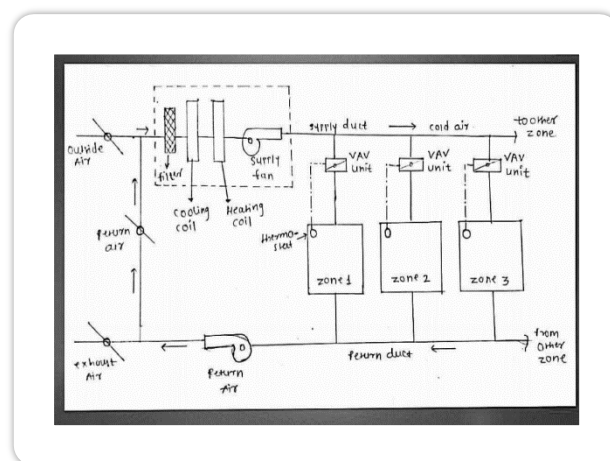 outside
Air
filter
cooling
coil
Heating
coil
supply
fan
supply duct
cold air
to other
zone
VAV
unit
VAV
unit
VAV
unit
thermo-
stat
zone 1
zone 2
zone 3
Return
air
exhaust
Air
Return
Air
Return duct
from
other
zone